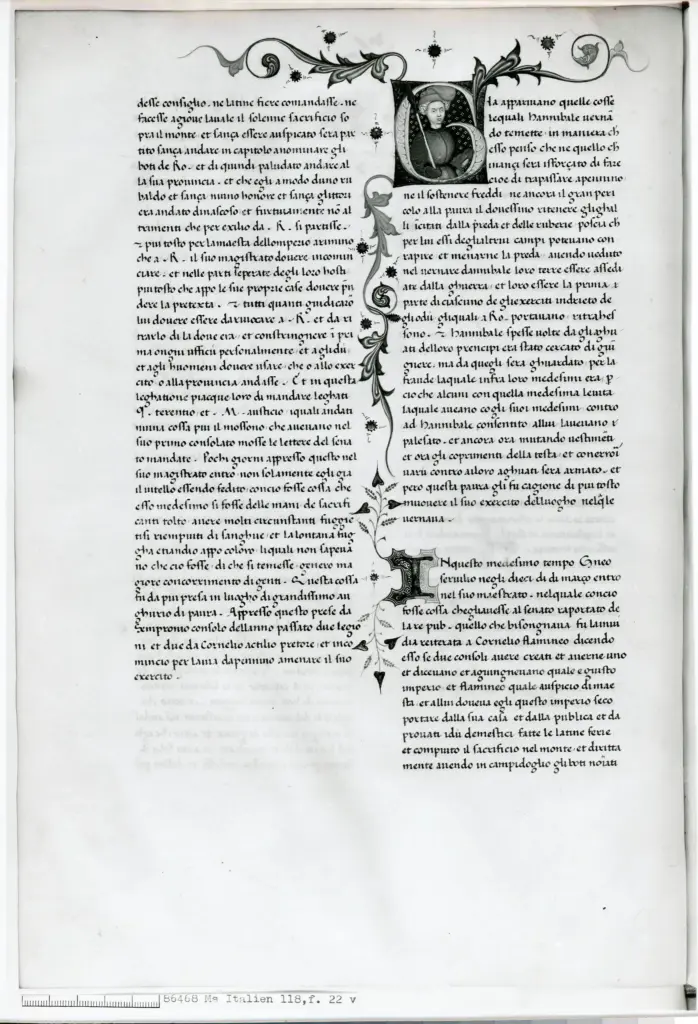 desse consiglio. ne latine fiere comandasse. ne
facesse agioue lauiale il solenne sacrificio so
pra il monte. et sança essere auspicato sera par
tito sança andare in capitolo anominare gli
boti de Ro. et di quindi paludato andare al
la sua prouincia. et che egli amodo duno ru
baldo et sança niuno honore et sança glittori
era andato dinascoso et furtiuamente nō al
trimenti che per exilio da. R. si partisse.
et piu tosto per lamaesta dellomperio arimino
che a. R. il suo magistrato douere incomin
ciare. et nelle parti seperate degli loro hosti
piu tosto che appo le sue proprie case douere pn
dere la pretexta. et tutti quanti giudicarō
lui douere essere dariuocare a. R. et da ri
trarlo di la doue era et constringnere i pri
ma ongni ufficii personalmente et aglidii
et agli huomeni douere usare che o allo exer
cito o alla prouincia andasse. Et in questa
leghatione piacque loro di mandare leghati
Q. terentio et. M. austicio iquali andati
niuna cossa piu il mossono che auenano nel
suo primo consolato mosse le lettere del sena
to mandate. Pochi giorni appresso questo nel
suo magistrato entro non solamente egli gia
il uitello essendo fedito concio fosse cossa che
esso medesimo si fosse delle mani de sacrifi
canti tolto auere molti circunstanti fuggie
tisi riempiuti di sanghue et la lontana fug
gha etiandio appo coloro liquali non sapeua
no che cio fosse di che si temesse genero ma
giore concorrimento di genti. Questa cossa
fu da piu presa in luogho di grandissimo au
ghurio di paura. Appresso questo prese da
sempronio consolo dellanno passato due legio
ni et due da Cornelio actilio pretore et inco
mincio per lauia dapennino amenare il suo
exercito.
Gia appariuano quelle cosse
lequali Hannibale uernā
do temette in maniera ch
esso penso che ne quello ch
inanci sera isforçato di fare
cioe di trapassare apennino
ne il sostenere freddi ne ancora il gran peri
colo alla paura il douessino ritenere glighal
li icitati dalla preda et delle ruberie poscia ch
per lui essi deglialtrui campi poteuano con
rapire et menarne la preda. auendo ueduto
nel uernare dannibale loro terre essere assedi
ate dalla ghuerra et loro essere la prima i
parte di ciascuno de gliexerciti indrieto de
gliodii gliquali a Ro. portauano ritrahes
sono. et Hannibale spesse uolte da gliaghu
ati delloro prencipi era stato cercato di giū
gnere. ma da quegli sera ghuardato per la
fraude laquale infra loro medesimi era p
cio che alcuni con quella medesima leuita
laquale aueano cogli suoi medesimi contro
ad Hannibale consentito allui laueuano i
palesato. et ancora ora mutando uestimēti
et ora gli coprimenti della testa et conerrori
uarii contro ailoro aghuati sera armato. et
pero questa paura gli fu cagione di piu tosto
muouere il suo exercito delluogho nelqle
uernaua.
INquesto medesimo tempo Gneo
seruilio negli dieci di di março entro
nel suo maestrato. nelquale concio
fosse cossa cheglianesse al senato raportato de
la re pub. quello che bisongnaua fu lanui
dia reiterata a Cornelio flaminco dicendo
esso se due consoli auere creati et auerne uno
et diceuano et agiungneuano quale e giusto
imperio et flamineo quale auspicio di mae
sta. et allui doueua egli questo imperio seco
portare dalla sua casa et dalla publica et da
priuati idii demestici fatte le latine ferie
et compiuto il sacrificio nel monte et diritta
mente auendo in campidoglio gli boti noiati
B6468 Ms Italien 118,f. 22 v